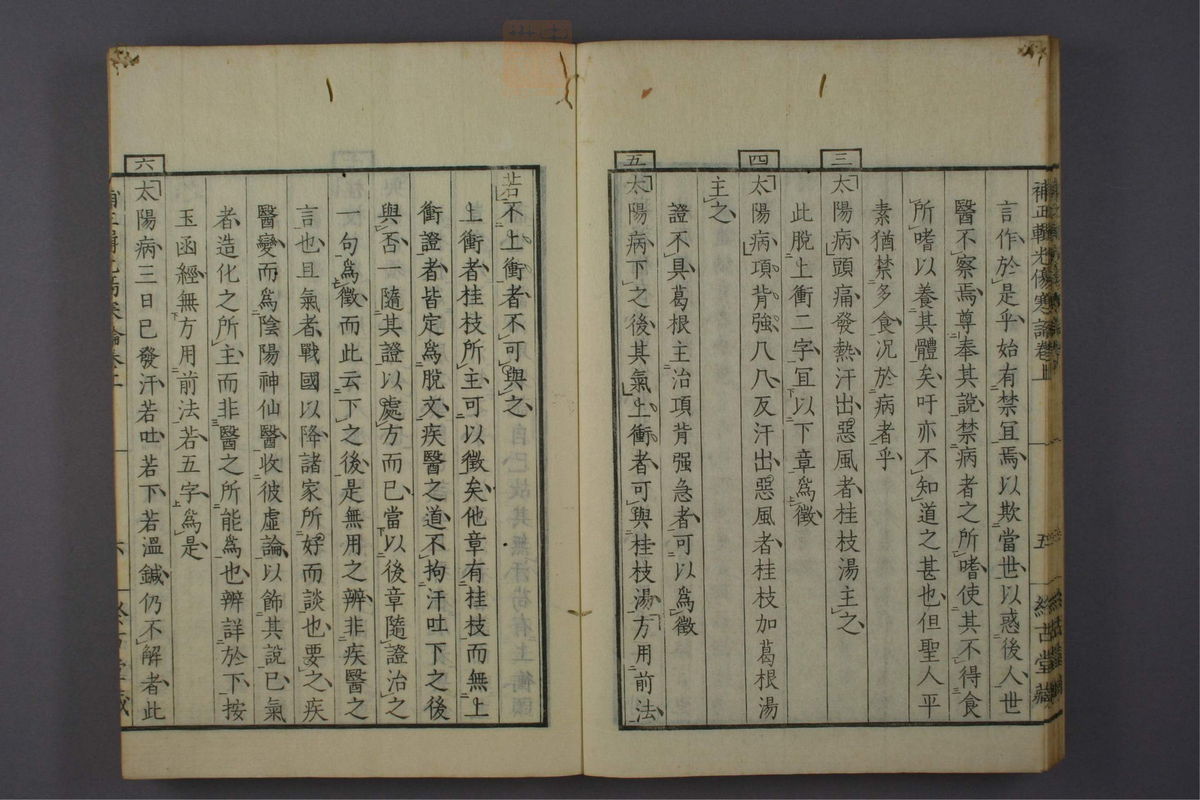 補正輯光傷寒論卷上
五
言作於是乎始有禁冝焉以欺當世以惑後人世
醫不察焉尊奉其說禁病者之所嗜使其不得食
所嗜以養其體矣吁亦不知道之甚也但聖人平
素猶禁多食况於病者乎
三
太陽病頭痛發熱汗出惡風者桂枝湯主之
此脫上衝二字冝以下章爲徵
四
太陽病項背強几几反汗出惡風者桂枝加葛根湯
主之
證不具葛根主治項背强急者可以爲徵
五
太陽病下之後其氣上衝者可與桂枝湯方用前法
若不上衝者不可與之
上衝者桂枝所主可以徵矣他章有桂枝而無上
衝證者皆定爲脫文疾醫之道不拘汗吐下之後
與否一隨其證以處方而已當以後章隨證治之
一句爲徵而此云下之後是無用之辨非疾醫之
言也且氣者戰國以降諸家所好而談也要之疾
醫變而爲陰陽神仙醫收彼虛論以飾其說已氣
者造化之所主而非醫之所能爲也辨詳於下按
玉函經無方用前法若五字爲是
六
太陽病三日已發汗若吐若下若溫鍼仍不解者此